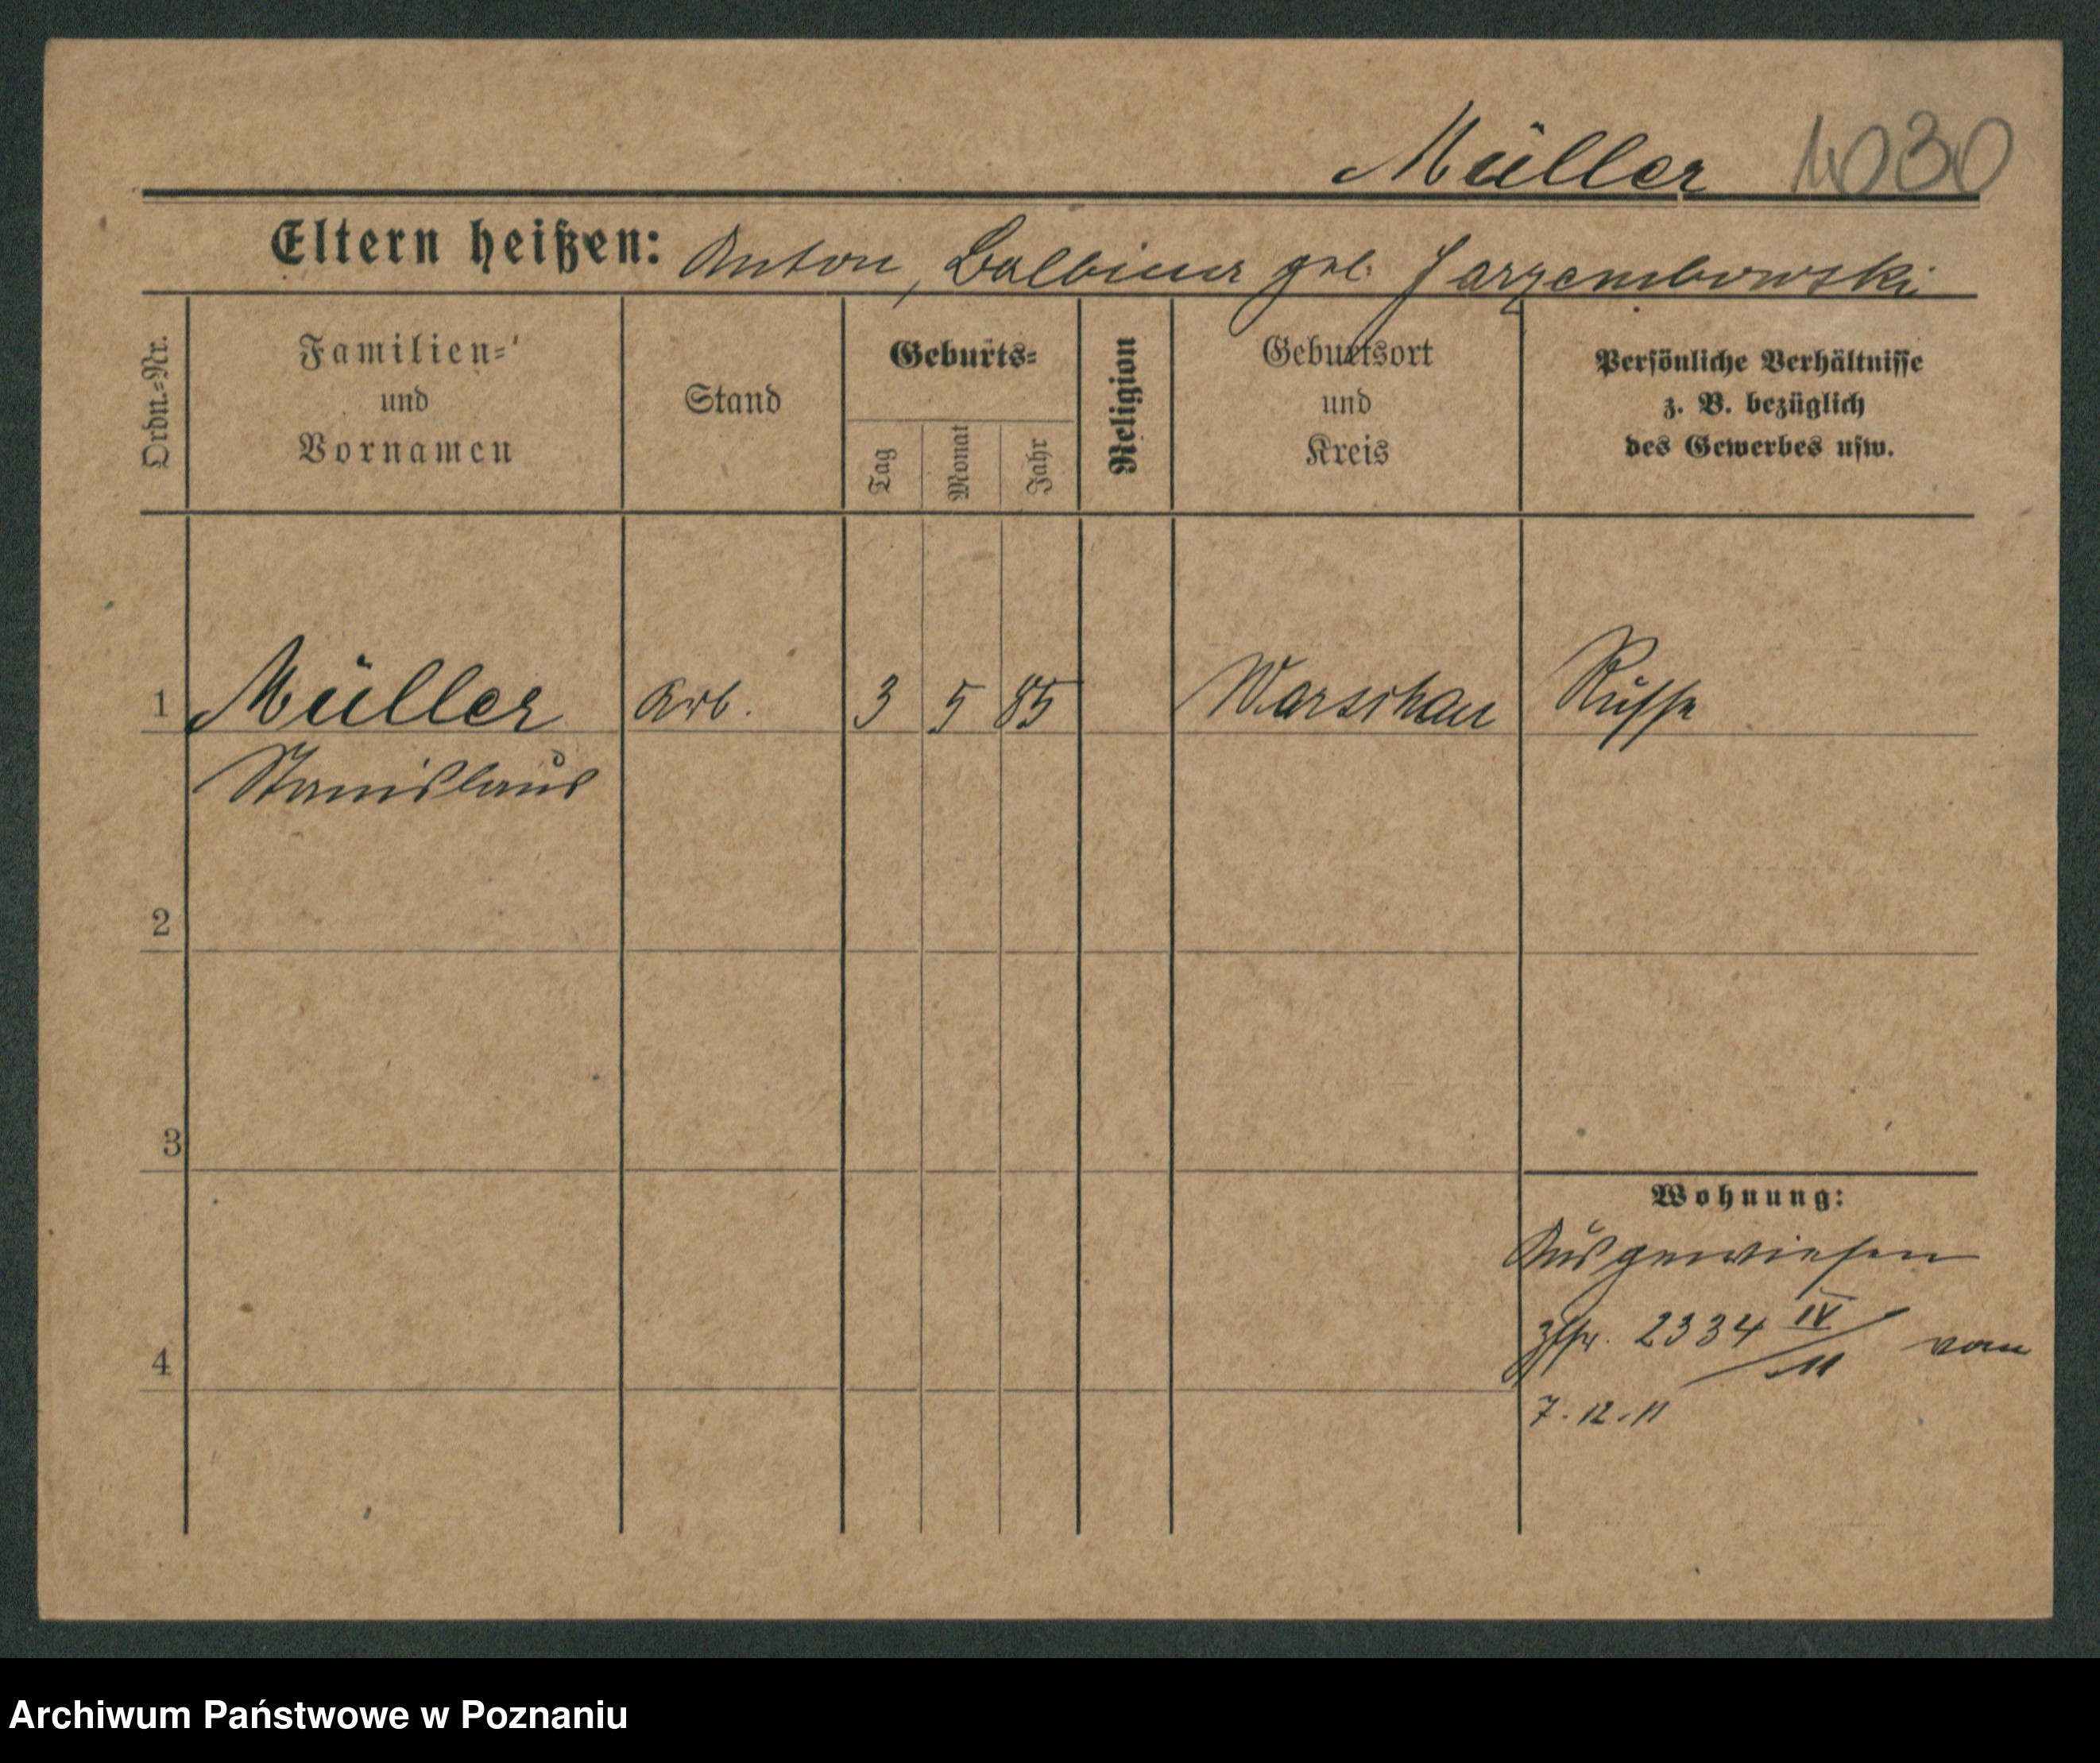 Müller 1030
Eltern heißen: Anton, Balbina geb. Jarzembowski
Ordn.-Nr.
Familien-
und
Vornamen
Stand
Geburts-
Tag
Monat
Jahr
Religion
Geburtsort
und
Kreis
Persönliche Verhältnisse
z. B. bezüglich
des Gewerbes usw.
1 Müller Arb. 3 5 85 Warschau Russe
Stanislaus
2
3
Wohnung:
Ausgewiesen
2334 IV/11 vom
4
7.12.11
Archiwum Państwowe w Poznaniu